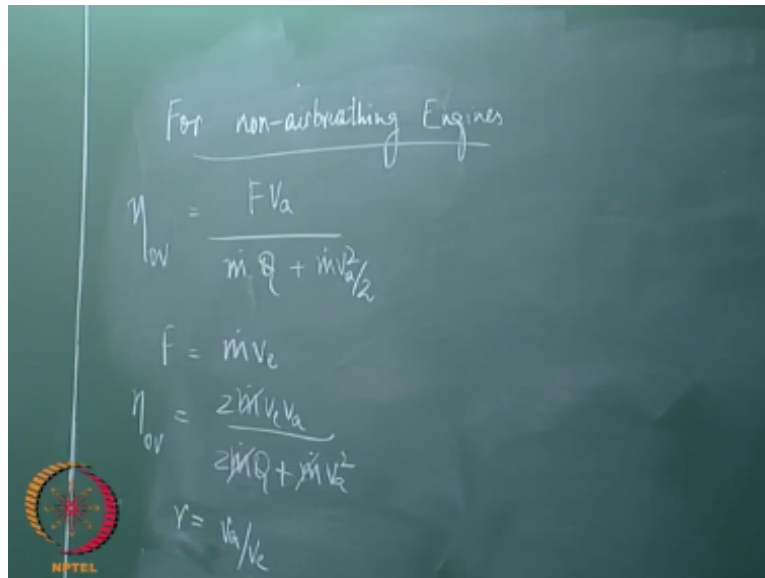 For non-airbreathing Engines
η_ov = F V_a / (ṁ Q + ṁ v_a²/2)
F = ṁ v_e
η_ov = 2 ṁ v_e v_a / (2 ṁ Q + ṁ v_a²)
r = v_a / v_e
NPTEL